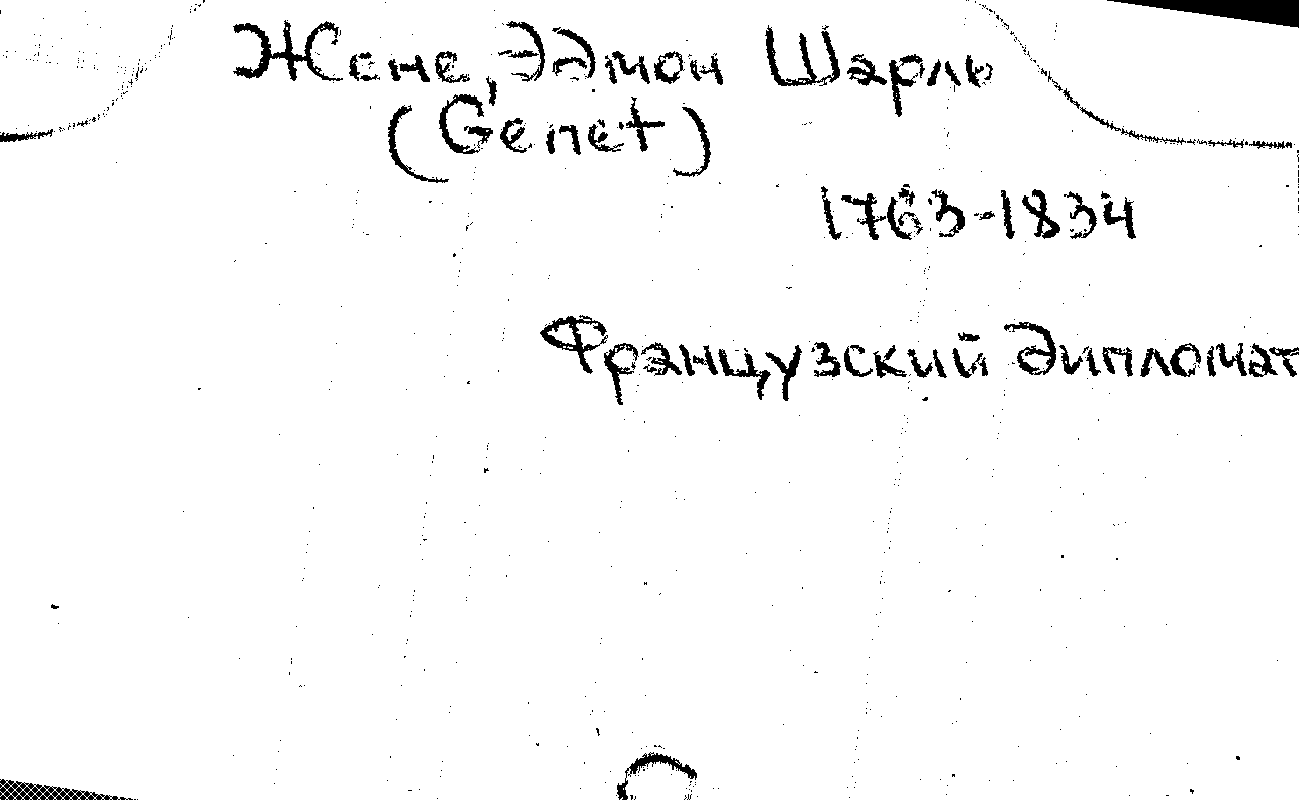 Жене, Эдмон Шарль
(Genet)
1763-1834
Французский дипломат